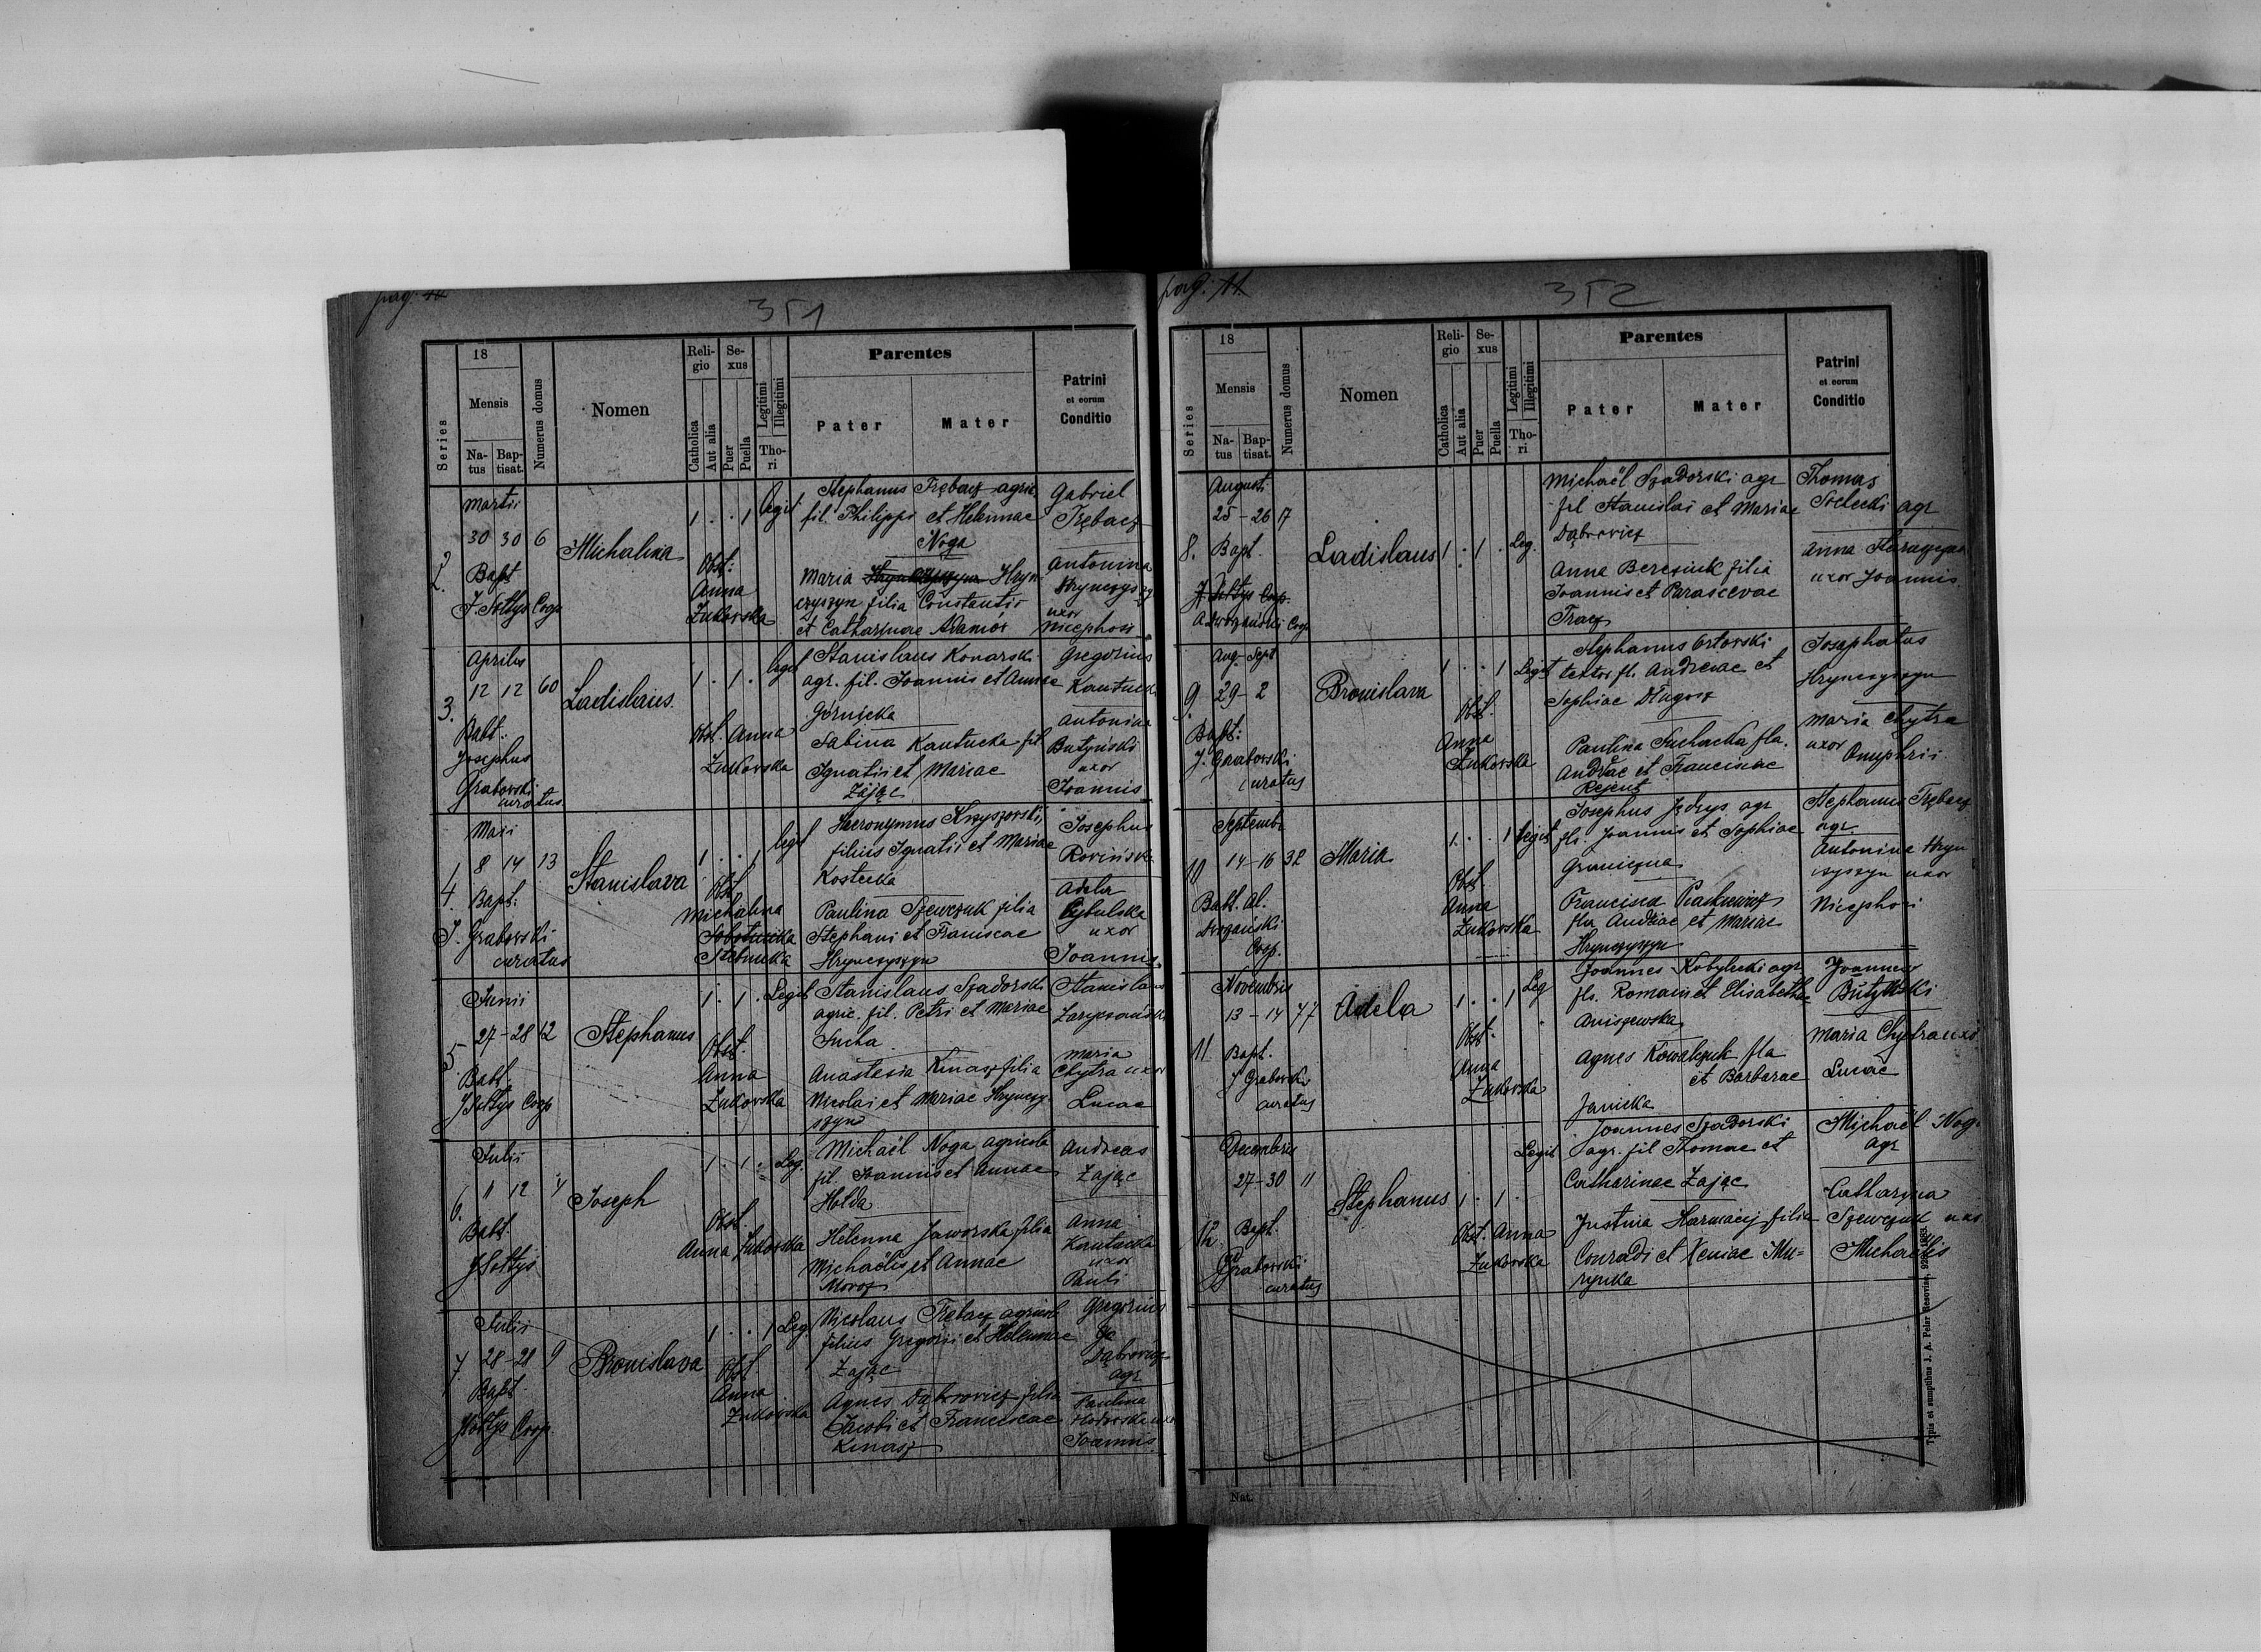 pag. 10
351
18
Mensis
Series
Natus
Baptisat.
Numerus domus
Nomen
Religio
Catholica
Aut alia
Sexus
Puer
Puella
Legitimi
Illegitimi
Thori
Parentes
Pater
Mater
Patrini
et eorum
Conditio
2.
Martii
30 30 6
Bapt
J. Sołtys Coop
Michalina
1 . . 1 legit
Obst:
Anna
Żukowska
Stephanus Trębacz agric
fil. Philippi et Helennae
Noga
Maria Hryn
czyszyn filia Constantis
et Catharinae Adamów
Gabriel
Trębacz
Antonina
Hrynczyszyn
uxor
Nicephori
3.
Aprilis
12 12 60
Bapt.
Josephus
Grabowski
curatus
Ladislaus
1 . 1 . legit
Obst. Anna
Żukowska
Stanislaus Konarski
agr. fil. Joannis et Annae
Górnicka
Sabina Kantucka fil
Ignatii et Mariae
Zając
Gregorius
Kantucki
Antonina
Butyński
uxor
Joannis
4.
Maii
8 14 13
Bapt:
J. Grabowski
curatus
Stanislava
1 . . 1 legit
Obst.
Michalina
Stebnicka
Hieronymus Krzyszowski,
filius Ignatii et Mariae
Kostecka
Paulina Szewczuk filia
Stephani et Franciscae
Hrynczyszyn
Josephus
Rowiński
Adela
Cybulska
uxor
Joannis
5
Junii
27-28 12
Bapt.
J Sołtys Coop
Stephanus
1 . 1 . Legit
Obst.
Anna
Żukowska
Stanislaus Szadorski
agric. fil. Petri et Mariae
Sucha
Anastasia Kinasz filia
Nicolai et Mariae Hrynczy
szyn
Stanislaus
Maria
Chytra uxor
Lucae
6.
Julii
11 12 4
Bapt.
J Sołtys
Joseph
1 . 1 . Leg.
Obst.
Anna Żukowska
Michaël Noga agricola
fil. Joannis et Annae
Hołda
Helenna Jaworska filia
Michaëlis et Annae
Moroz
Andreas
Zając
Anna
Kantucka
uxor
Pauli
7
Julii
28-28 9
Bapt.
J Sołtys Coop.
Bronislava
1 . . 1 Leg.
Obst.
Anna
Żukowska
Nicolaus Trębacz agricol
filius Gregorii et Helennae
Zając
Agnes Dąbrowicz filia
Jacobi et Franciscae
Kinasz
Gregorius
Dąbrowicz
agr
Paulina
uxor
Joannis
pag: 11
352
18
Mensis
Series
Natus
Baptisat.
Numerus domus
Nomen
Religio
Catholica
Aut alia
Sexus
Puer
Puella
Legitimi
Illegitimi
Thori
Parentes
Pater
Mater
Patrini
et eorum
Conditio
8.
Augusti
25-26 17
Bapt.
J Sołtys Coop.
Coop
Ladislaus
1 . 1 . Leg.
Michaël Szadorski agr
fil Stanislai et Mariae
Dąbrowicz
Anna Bereziuk filia
Joannis et Parascevae
Tracz
Thomas
agr
Anna
uxor Joannis
9.
Aug. Sept
29-2
Bapt:
J. Grabowski
curatus
Bronislava
1 . . 1 Legit
Obst.
Anna
Żukowska
Stephanus Ortowski
textor fl. Andreae et
Sophiae Długosz
Paulina Suchacka fla.
Andreae et Franciscae
Rejent
Josaphatus
Hrynczyszyn
Maria Chytra
uxor
Onuphrii
10
Septembr
14-16 32
Bapt. Al.
Coop.
Maria
1. . . 1 Legit
Obst.
Anna
Żukowska
Josephus Jędrys agr
fli. Joannis et Sophiae
Graniczna
Francisca Piaskiewicz
fla Andreae et Mariae
Hrynczyszyn
Stephanus Trębacz
agr.
Antonina Hryn
czyszyn uxor
Nicephori
11
Novembris
13-14 47
Bapt.
J Grabowski
curatus
Adela
1 . . 1 Leg
Obst.
Anna
Żukowska
Joannes Kobylecki agr
fls. Romani et Elisabethae
Aniszewska
Agnes Kowalczuk fla
et Barbarae
Janicka
Joannes
Butyński
Maria Chytra uxor
Lucae
12.
Decembris
27-30 11
Bapt
Grabowski
curatus
Stephanus
1 . 1 . Legit
Obst. Anna
Żukowska
Joannes Szadorski
agr. fil Thomae et
Catharinae Zając
Justina Harmacij filia
Conradi et Xeniae Mu-
rynka
Michaël Noga
agr
Catharina
Szewczuk uxor
Michaëlis
Typis et sumptibus J. A. Pelar Resoviae.
Nat.